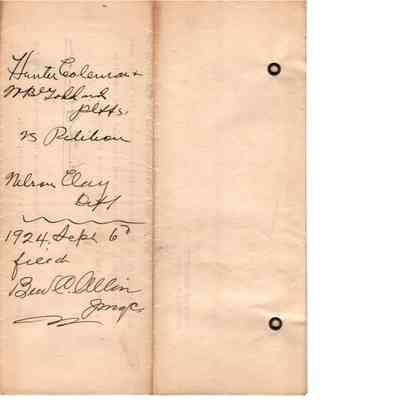 Hunter Coleman &
W. B. Goddard
Pltfs.
vs Petition
Nelson Clay
Deft
1924, Sept 6th
filed
Ben C. Allin